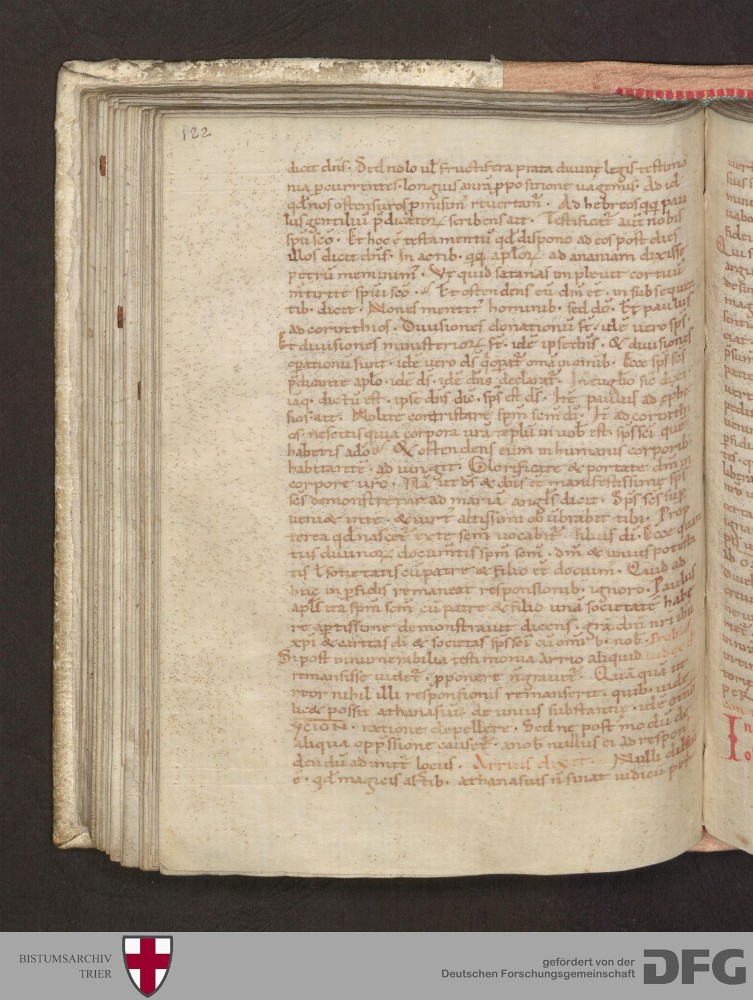 122
dicit dñs. Sed nolo ul fructifera prata diuine legis testimo
nia pcurrentes. longius uagemus. Ad id
qd nos ostensuros pmisim reuertam. Ad hebreos qq pau
lus gentiliū pdicator scribens ait. Testificat aut nobis
spūs scō. Et hoc ē testamentū qd dispono ad eos post dies
illos dicit dñs. In actib. qq aplor ad ananiam dixisse
petrū meminim. Vt quid satanas impleuit cor tuū
mtirite spūi scō. Et ostendens eū dm eē. in subsequen
tib. dicit. Non es mentit hominib. sed dō. Et paulus
ad corinthios. Diuisiones donationū st. idē uero sps.
Et diuisiones ministerior st. idē ipse dñs. & diuisiones
opationū sunt. idē uero ds qi opat omā in omib. Ecce sps scs
pdicante aplo. idē ds. idē dns declarat. In euglio sic
dictū est. ipse dns dic. sps est ds. Itē paulus ad ephe
sios ait. Nolite contristare spm scm dī. It ad corinth
os. nescitis quia corpora urā tēplū in uob est. sps sci que
habetis a dō. & ostendens eum in humanis corporib.
habitare. adiungit. Glorificate & portate dm in
corpore uro. Nā ut ds & dns eē manifestissime sps
scs demonstreret ad mariā angls dicit. Sps scs sup
ueniet in te. & uirt altissimi obūbrabit tibi. Prop
terea qd nascet ex te scm uocabit filius dī. Ecce quan
tis diuinor documtis spm scm. dm & unius potesta
tis l societatis cū patre & filio eē docuim. Quid ad
huc in pfidis remaneat responsionib. ignoro. Paulus
apls ita spm scm cū patre & filio unā societate habe
re aptissime demonstrauit dicens. gra dni nri ihu
xpi & caritas dī & societas sps sci cū omib. uob. Probus
Si post innumerabilia testimonia Arrio aliquid
remansisse uidet. pponere n grauet. Quāquā ut
reor nihil illi responsionis remanserit. quib. uide
licet possit athanasiū de unius substantie. idē omo
ycion. ratione depellere. Sed ne post modū de
aliqua oppssione causet. a nob nullus ei ad respon
dendū adimit locus. Arrius dixit. Nulli
ē. qd magicis artib. athanasius n sinat iudiciū
BISTUMSARCHIV
TRIER
gefördert von der
Deutschen Forschungsgemeinschaft
DFG